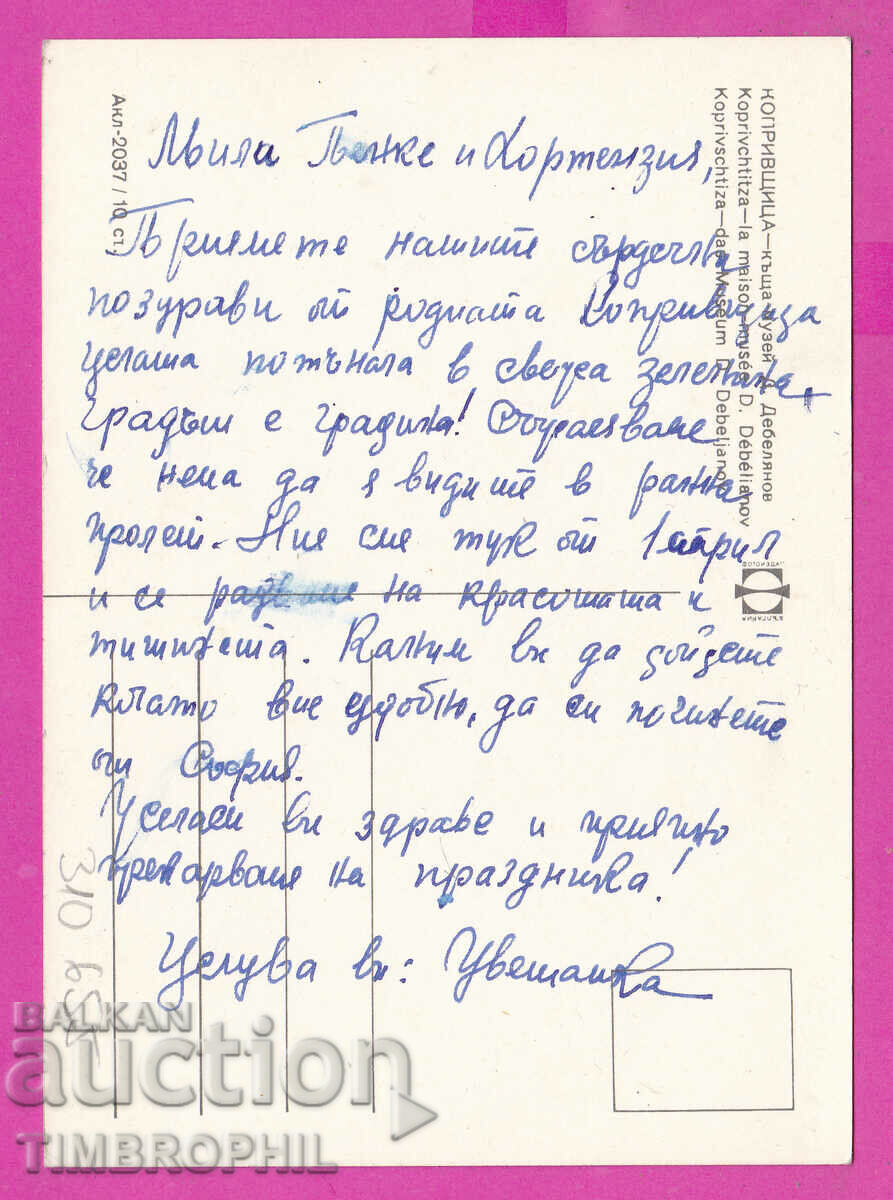 Мила Пенке и Хортензия,
Приемете нашите сърдечни
поздрави от родната Копривщица
Цялата потънала в свежа зеленина,
градът е градина! Съжаляваме
че няма да я видите в ранна
пролет. Ние сме тук от 1 април
и се радваме на красотата и
тишината. Каним ви да дойдете
когато вие удобно, да си починете
от София.
Желаем ви здраве и приятно
прекарване на празника!
Целува ви: Цветанка
КОПРИВЩИЦА—къща музей Д. Дебелянов
Koprivchtitza—la maison-musée D. Débélianov
Koprivschtiza—das Museum D. Debeljanov
Акл-2037 / 10 ст.
ФОТОИЗДАТ
БЪЛГАРИЯ
310 657
BALKAN
auction
TIMBROPHIL